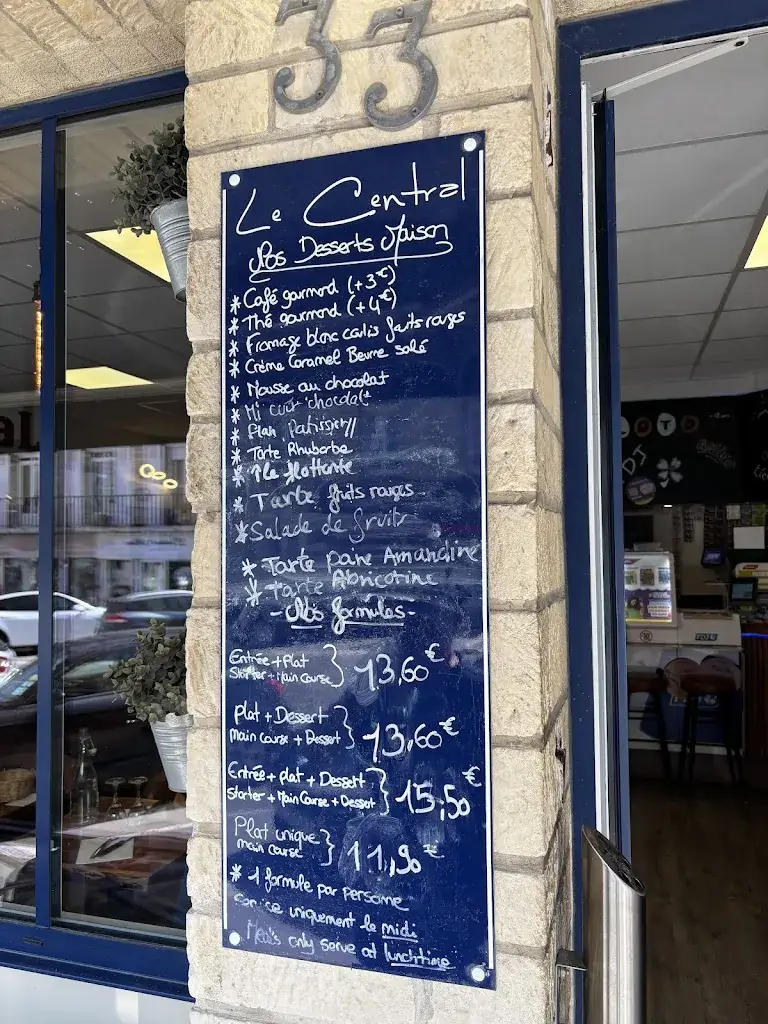 33
Le Central
Nos Desserts Maison
* Café gourmand (+3€)
* Thé gourmand (+4€)
* Fromage blanc coulis fruits rouges
* Crème Caramel Beurre salé
* Mousse au chocolat
* Mi cuit chocolat
* Flan Patissier
* Tarte Rhubarbe
* Île flottante
* Tarte fruits rouges
* Salade de fruits
* Tarte poire Amandine
* Tarte Abricotine
- Nos formules -
Entrée + Plat
Starter + Main Course } 13,60€
plat + Dessert
Main course + Dessert } 13,60€
Entrée + plat + Dessert
Starter + Main Course + Dessert } 15,50€
Plat unique
main course } 11,90€
* 1 formule par personne
Service uniquement le midi
Meals only serve at lunchtime
LOTO
DJ